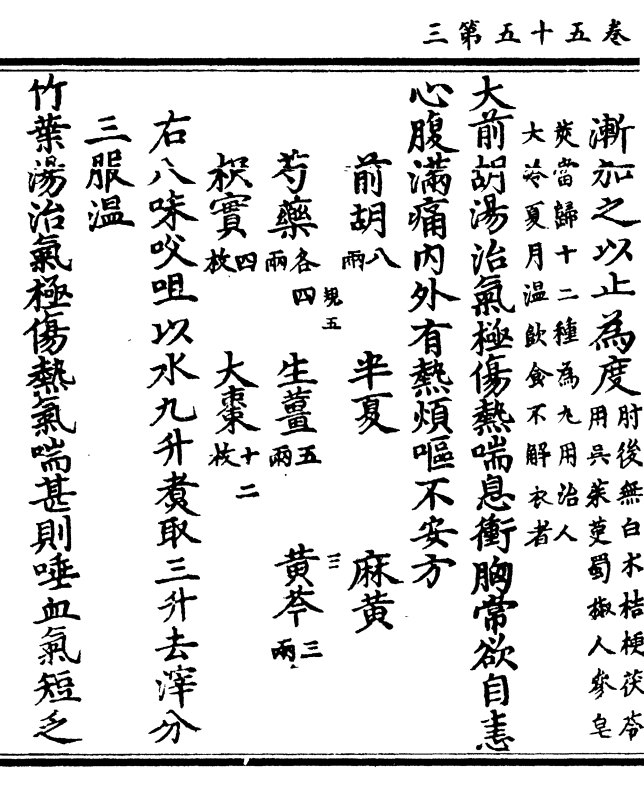 卷五十五第三
漸加之以止為度肘後無白木桔梗茯苓用吳茱萸蜀椒人參皂
莢當歸十二種為丸用治人大冷夏月温飲食不解衣者
大前胡湯治氣極傷熱喘息衝胸常欲自恚
心腹滿痛内外有熱煩嘔不安方
前胡八兩 半夏 麻黄
芍藥各四兩 生薑五兩 黄芩三兩
枳實四枚 大棗十二枚
右八味㕮咀以水九升煮取三升去滓分
三服温
竹葉湯治氣極傷熱氣喘甚則唾血氣短乏